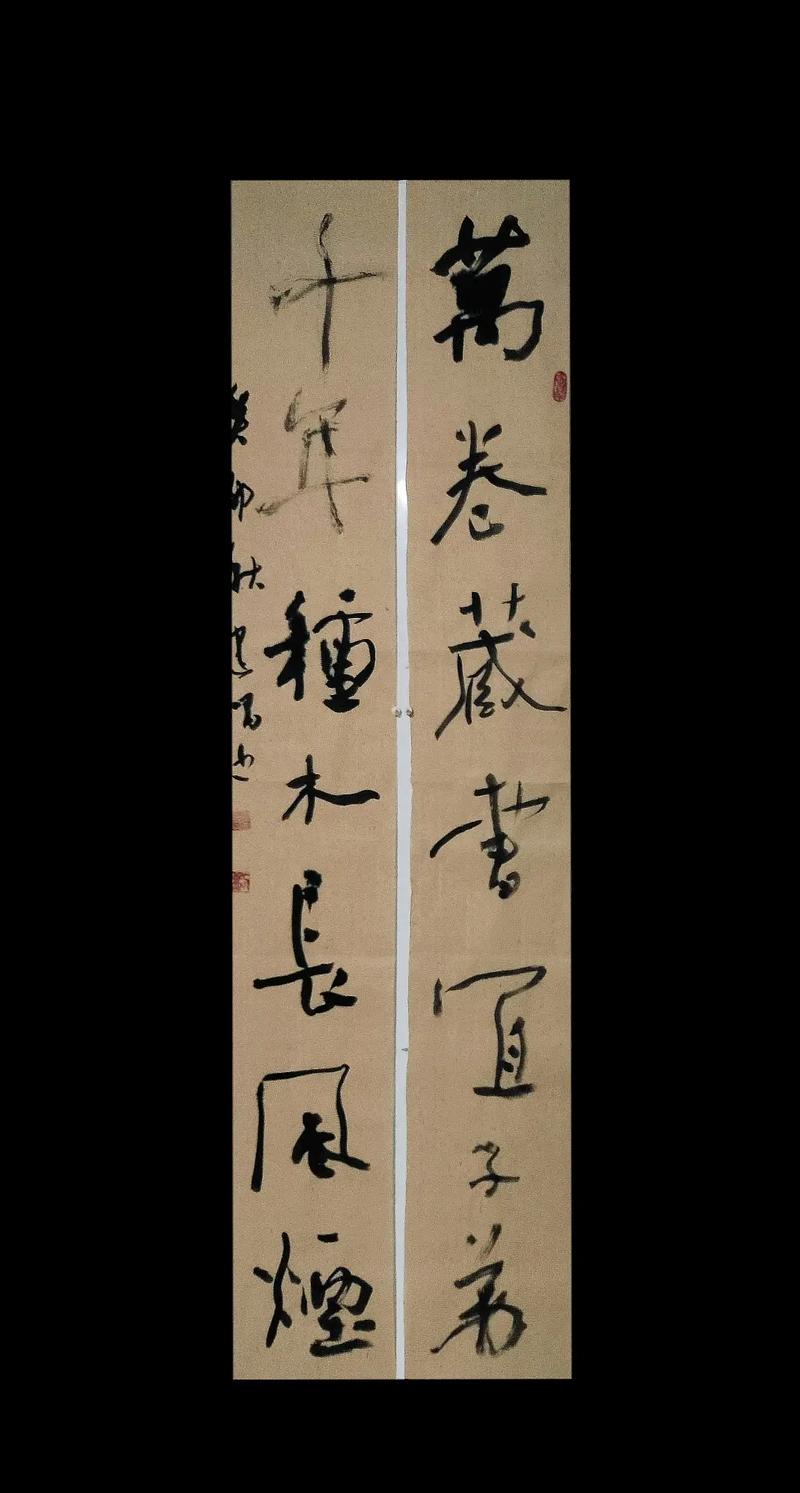 萬卷藏書宜子弟
千年種木長風煙
癸卯秋